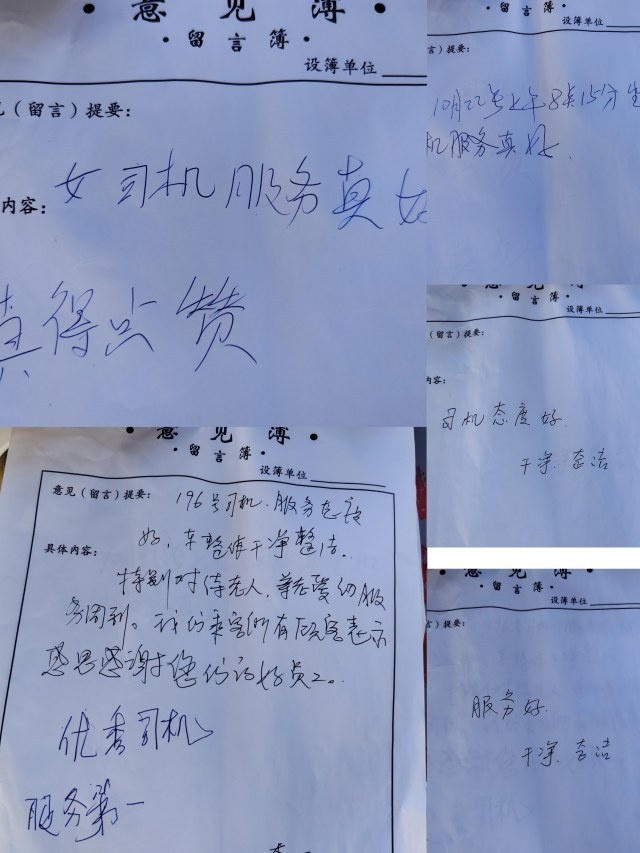 意见簿
留言簿
设簿单位
见（留言）提要：
内容：
女司机服务真好
真得点赞
留言簿
设簿单位
言）提要：
10月22号上午8点15分
机服务真好
意见簿
留言簿
设簿单位
（留言）提要：
内容：
司机态度好
干净 整洁
意见簿
留言簿
设簿单位
意见（留言）提要：
196号司机. 服务态度
具体内容：
好，车整体干净整洁.
特别对待老人，尊老爱幼服
务周到。我们乘客所有顾客表示
感恩感谢您们的好员工。
优秀司机
服务第一
意见簿
留言簿
设簿单位
言）提要：
服务好
干净 整洁